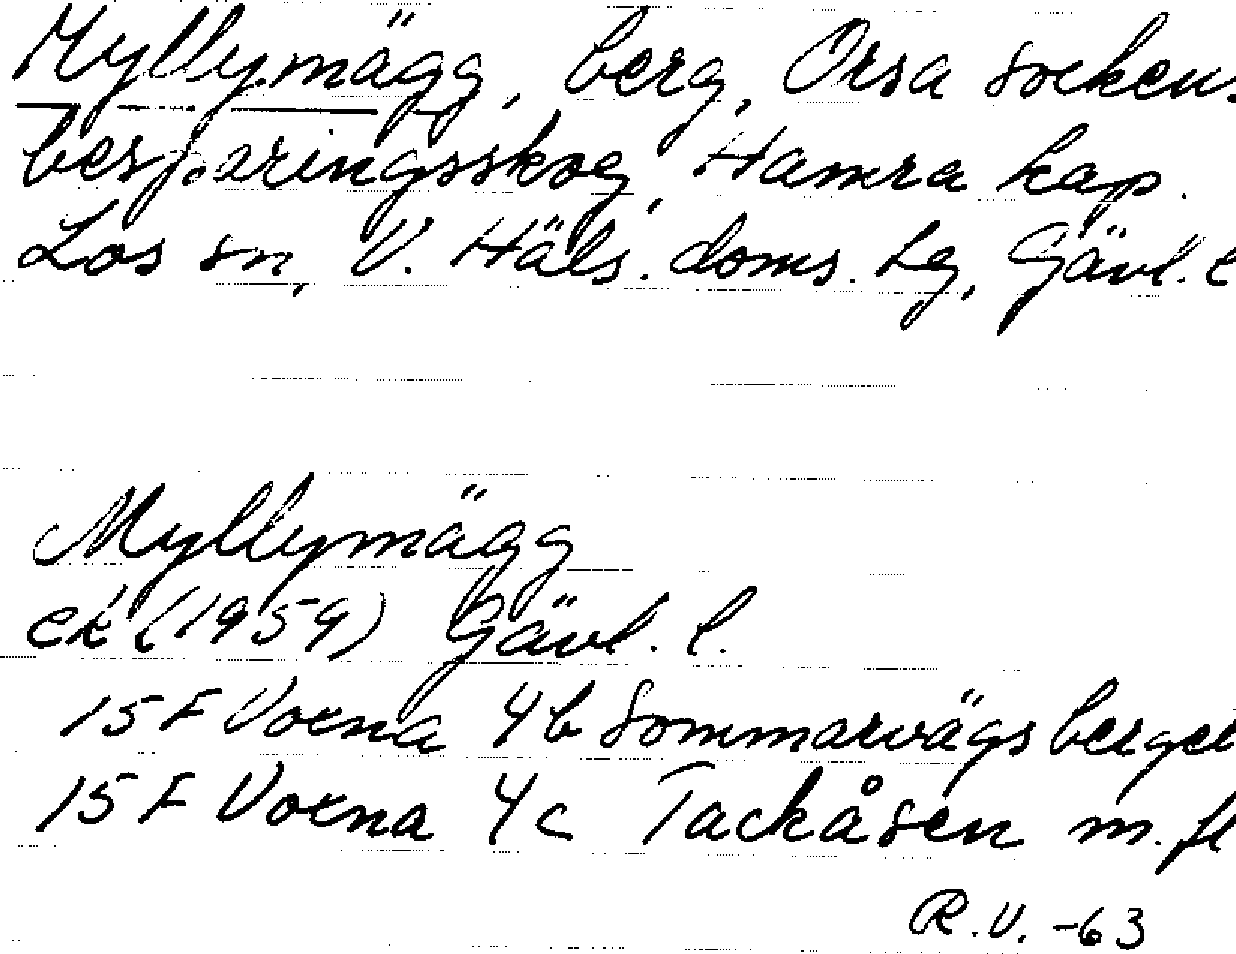 Myllymägg, berg, Orsa socken.
besparingsskog, Hamra kap.
Los sn, V. Häls. doms. lg, Gävl. l
Myllymägg
ek (1959) Gävl. l.
15 F Voxna 4b Sommarvägsberget
15 F Voxna 4c Tackåsen m. fl
R.V. -63